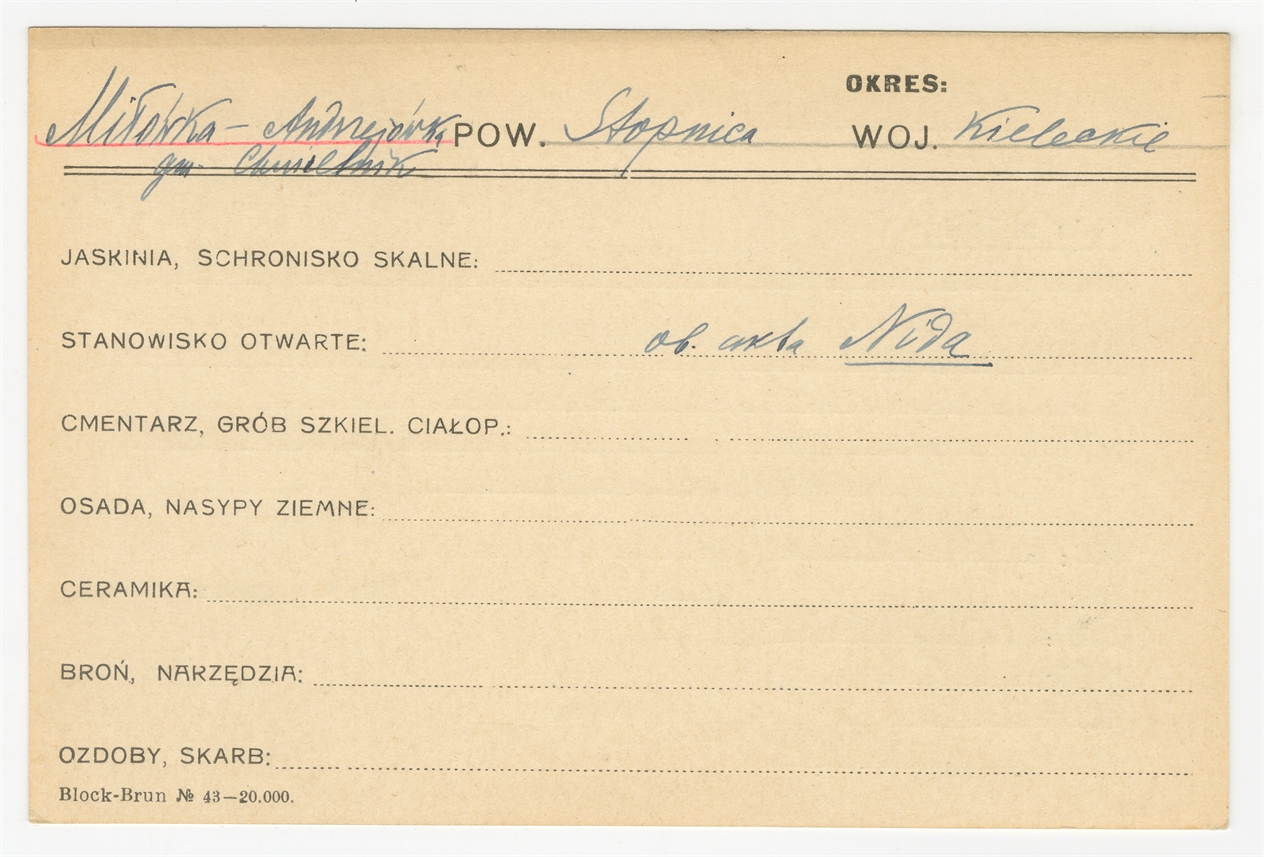 OKRES:
Miłówka – Andrzejówka POW. Stopnica WOJ. Kieleckie
gm. Chmielnik
JASKINIA, SCHRONISKO SKALNE:
STANOWISKO OTWARTE: ob. akta Nida
CMENTARZ, GRÓB SZKIEL. CIAŁOP.:
OSADA, NASYPY ZIEMNE:
CERAMIKA:
BROŃ, NARZĘDZIA:
OZDOBY, SKARB:
Block-Brun № 43—20.000.